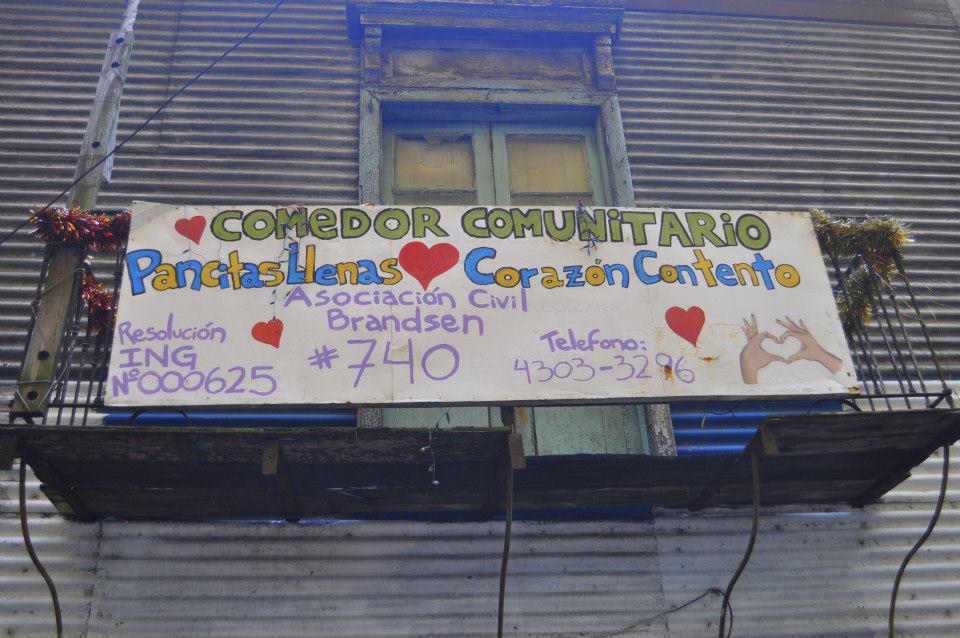 COMEDOR COMUNITARIO
Pancitas Llenas Corazón Contento
Asociación Civil
Brandsen
#740
Resolución
ING
Nº000625
Telefono:
4303-3296